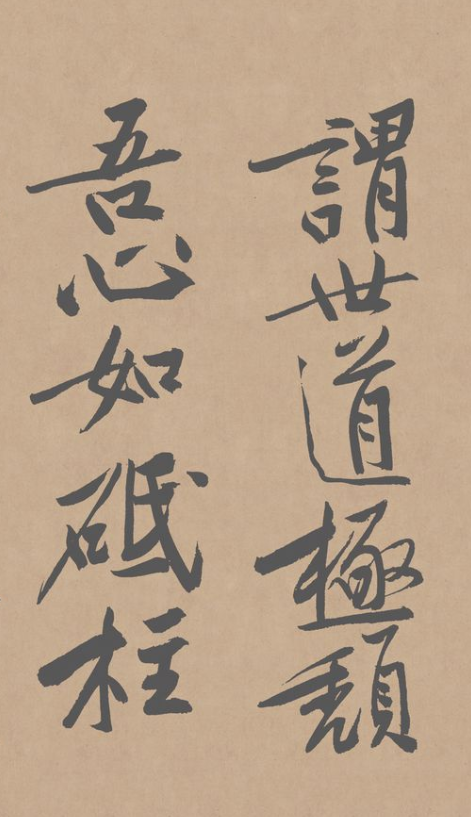 謂世道極頹
吾心如砥柱